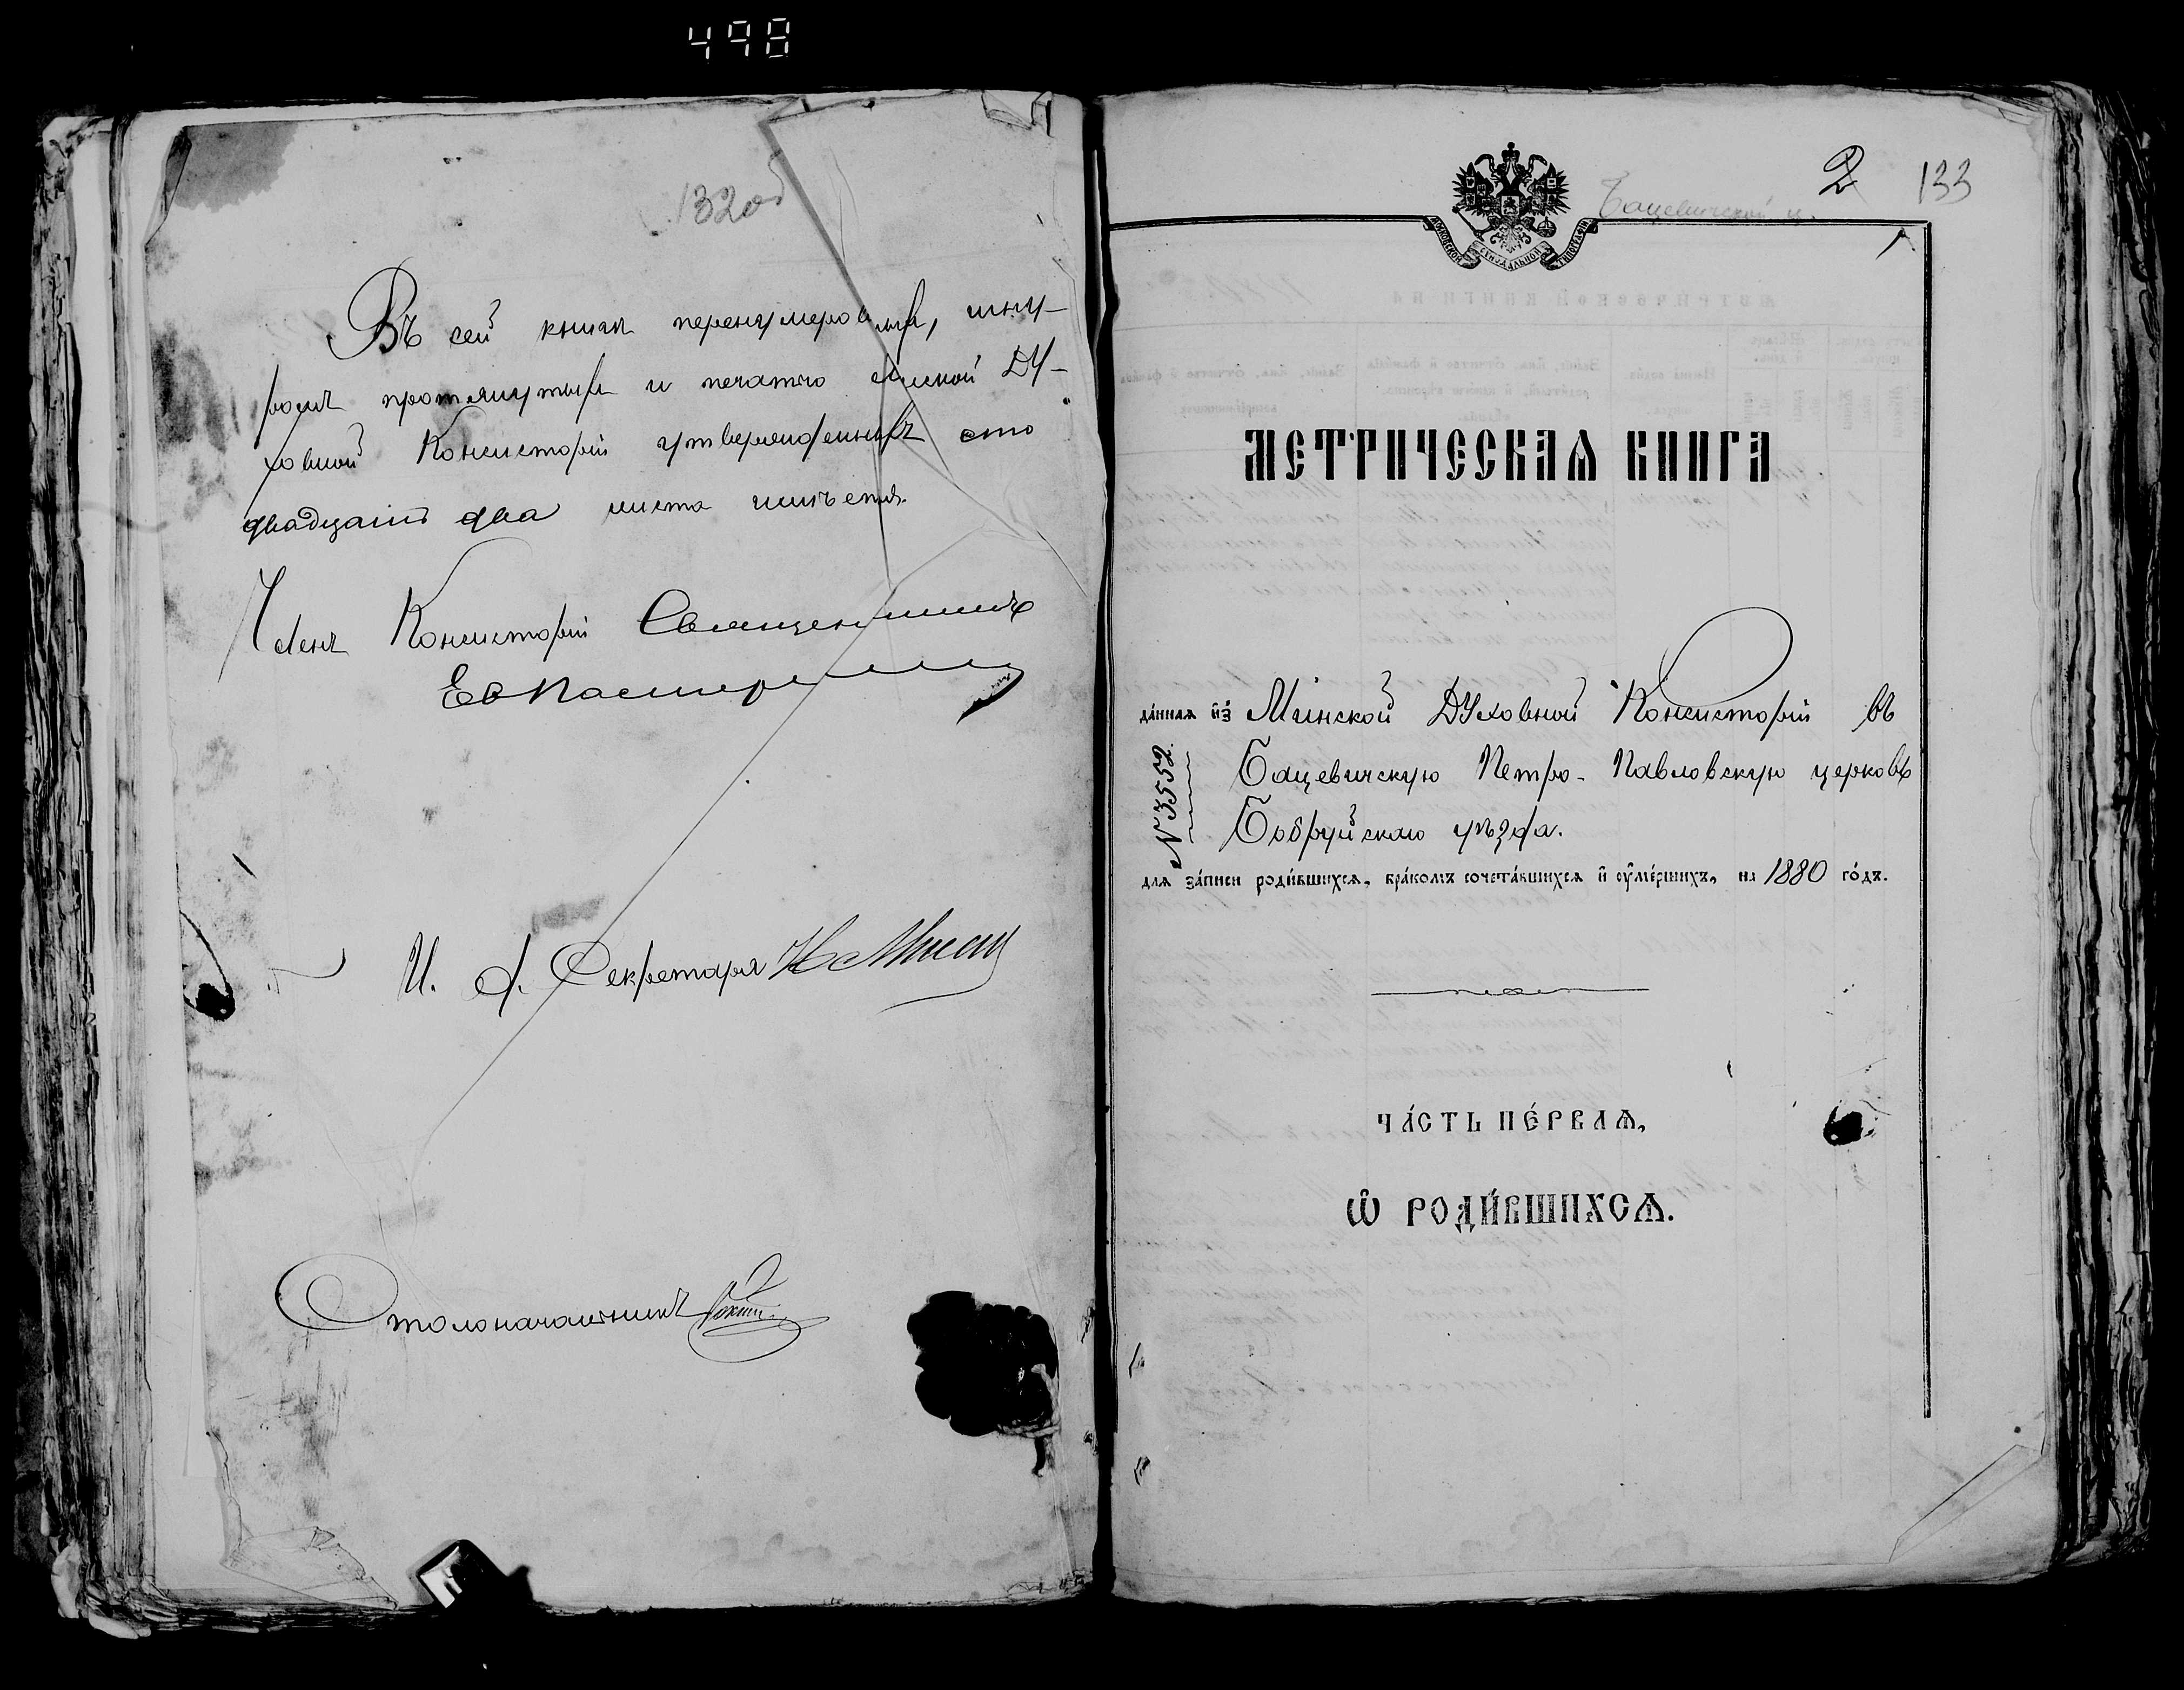 498
132об
Въ сей книгѣ перенумерованныхъ, шну-
ромъ протянутыхъ и печатью Минской Ду-
ховной Консисторіи утвержденныхъ сто
двадцать два листа имѣется.
Членъ Консисторіи Священникъ
И. д. Секретаря
Столоначальникъ
2 133
Бацевичской ц.
МОСКОВСКОЙ СѴНОДАЛЬНОЙ ТИПОГРАФІИ
МЕТРИЧЕСКАЯ КНИГА
да́ннаѧ и҆з̾ Минской Духовной Консисторіи въ
Бацевичскую Петро-Павловскую церковь
Бобруйскаго уѣзда.
№ 3552.
длѧ за́писи роди́вшихсѧ, бра́комъ сочета́вшихсѧ и҆ ᲂу҆ме́ршихъ, на 1880 го́дъ.
ЧА́СТЬ ПЕ́РВАѦ,
Ѡ҆ РОДИ́ВШИХСѦ.